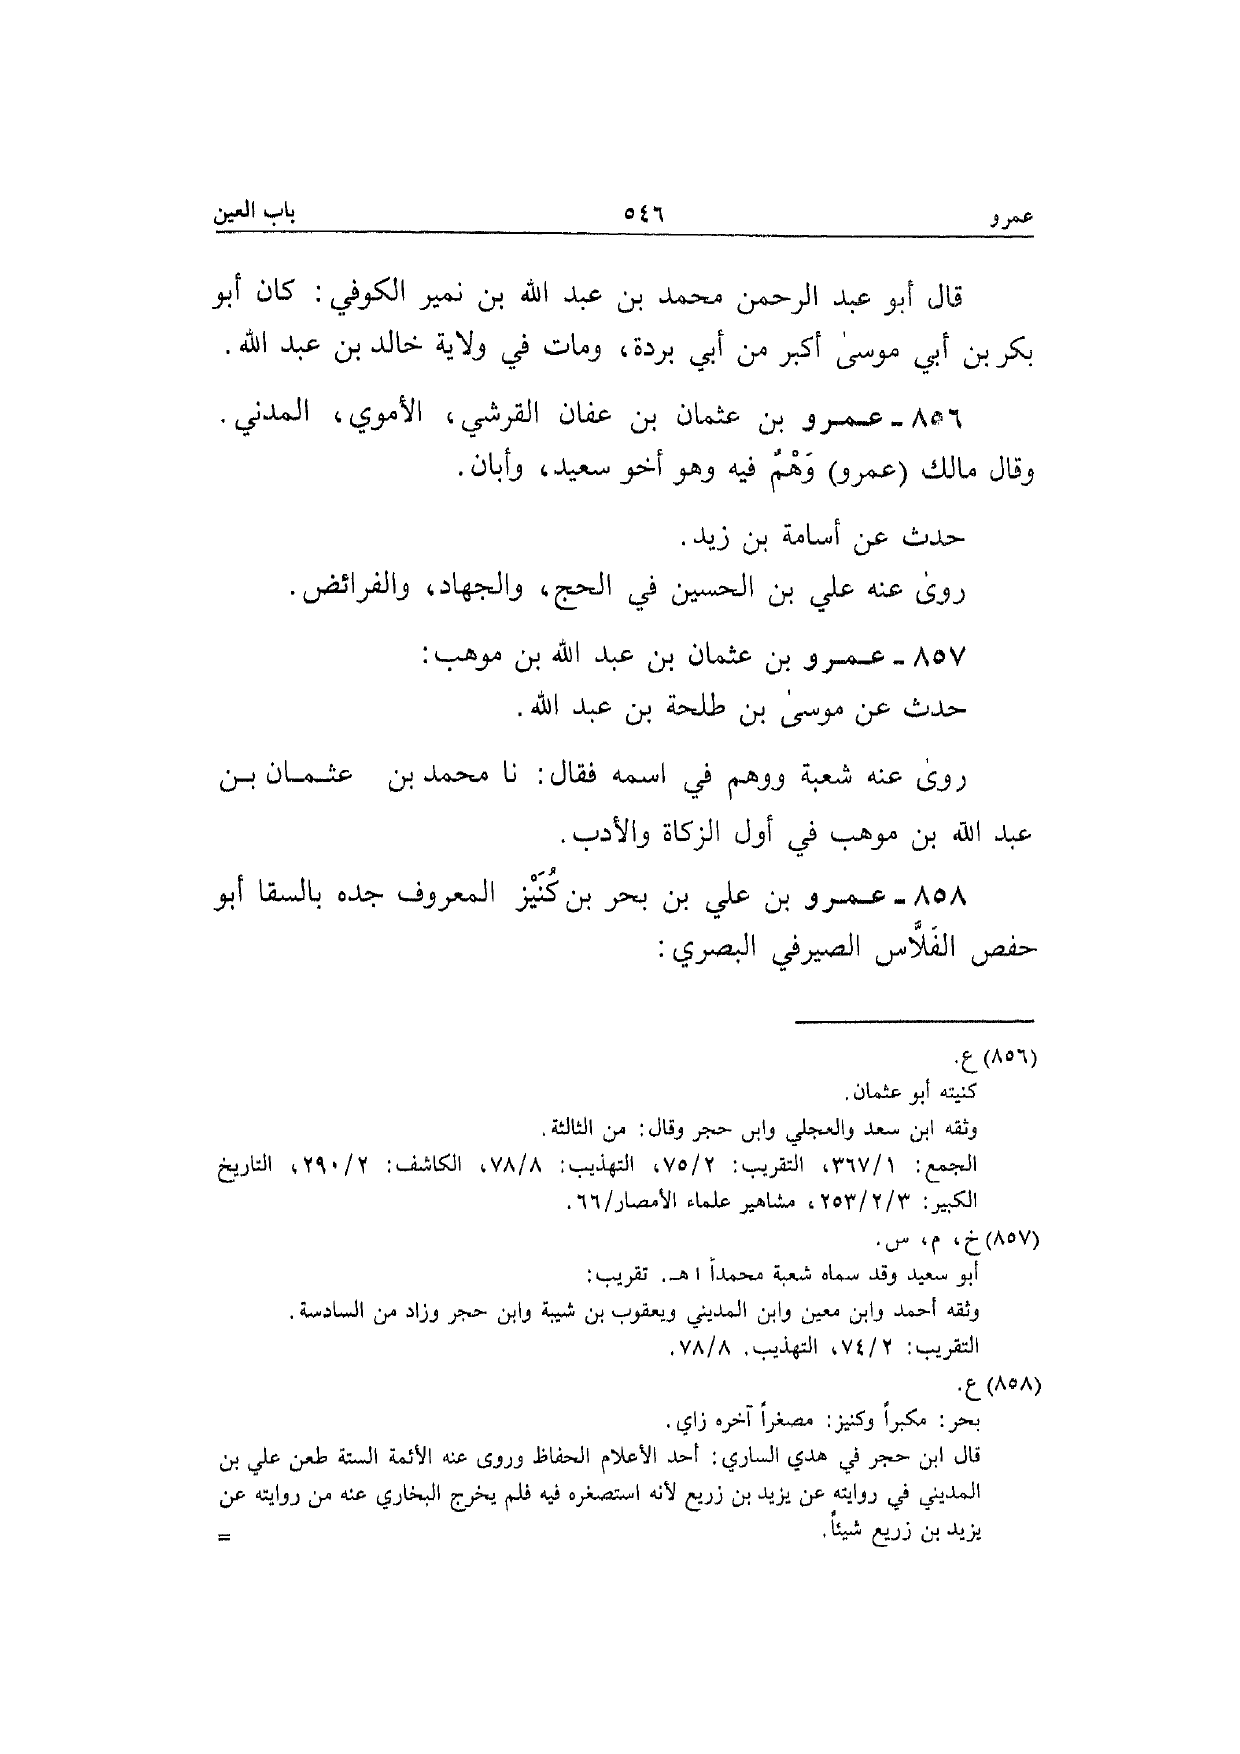 عمرو ٥٤٦ باب العين
قال أبو عبد الرحمن محمد بن عبد الله بن نمير الكوفي: كان أبو
بكر بن أبي موسىٰ أكبر من أبي بردة، ومات في ولاية خالد بن عبد الله.
٨٥٦ ـ عمرو بن عثمان بن عفان القرشي، الأموي، المدني.
وقال مالك (عمرو) وَهْمٌ فيه وهو أخو سعيد، وأبان.
حدث عن أسامة بن زيد.
روىٰ عنه علي بن الحسين في الحج، والجهاد، والفرائض.
٨٥٧ ـ عمرو بن عثمان بن عبد الله بن موهب:
حدث عن موسىٰ بن طلحة بن عبد الله.
روىٰ عنه شعبة ووهم في اسمه فقال: نا محمد بن عثمان بن
عبد الله بن موهب في أول الزكاة والأدب.
٨٥٨ ـ عمرو بن علي بن بحر بن كُنَيْز المعروف جده بالسقا أبو
حفص الفَلَّاس الصيرفي البصري:
(٨٥٦) ع.
كنيته أبو عثمان.
وثقه ابن سعد والعجلي وابن حجر وقال: من الثالثة.
الجمع: ٣٦٧/١، التقريب: ٧٥/٢، التهذيب: ٧٨/٨، الكاشف: ٢٩٠/٢، التاريخ
الكبير: ٢٥٣/٢/٣، مشاهير علماء الأمصار/٦٦.
(٨٥٧) خ، م، س.
أبو سعيد وقد سماه شعبة محمداً ا هـ. تقريب:
وثقه أحمد وابن معين وابن المديني ويعقوب بن شيبة وابن حجر وزاد من السادسة.
التقريب: ٧٤/٢، التهذيب. ٧٨/٨.
(٨٥٨) ع.
بحر: مكبراً وكنيز: مصغراً آخره زاي.
قال ابن حجر في هدي الساري: أحد الأعلام الحفاظ وروى عنه الأئمة الستة طعن علي بن
المديني في روايته عن يزيد بن زريع لأنه استصغره فيه فلم يخرج البخاري عنه من روايته عن
يزيد بن زريع شيئاً. =